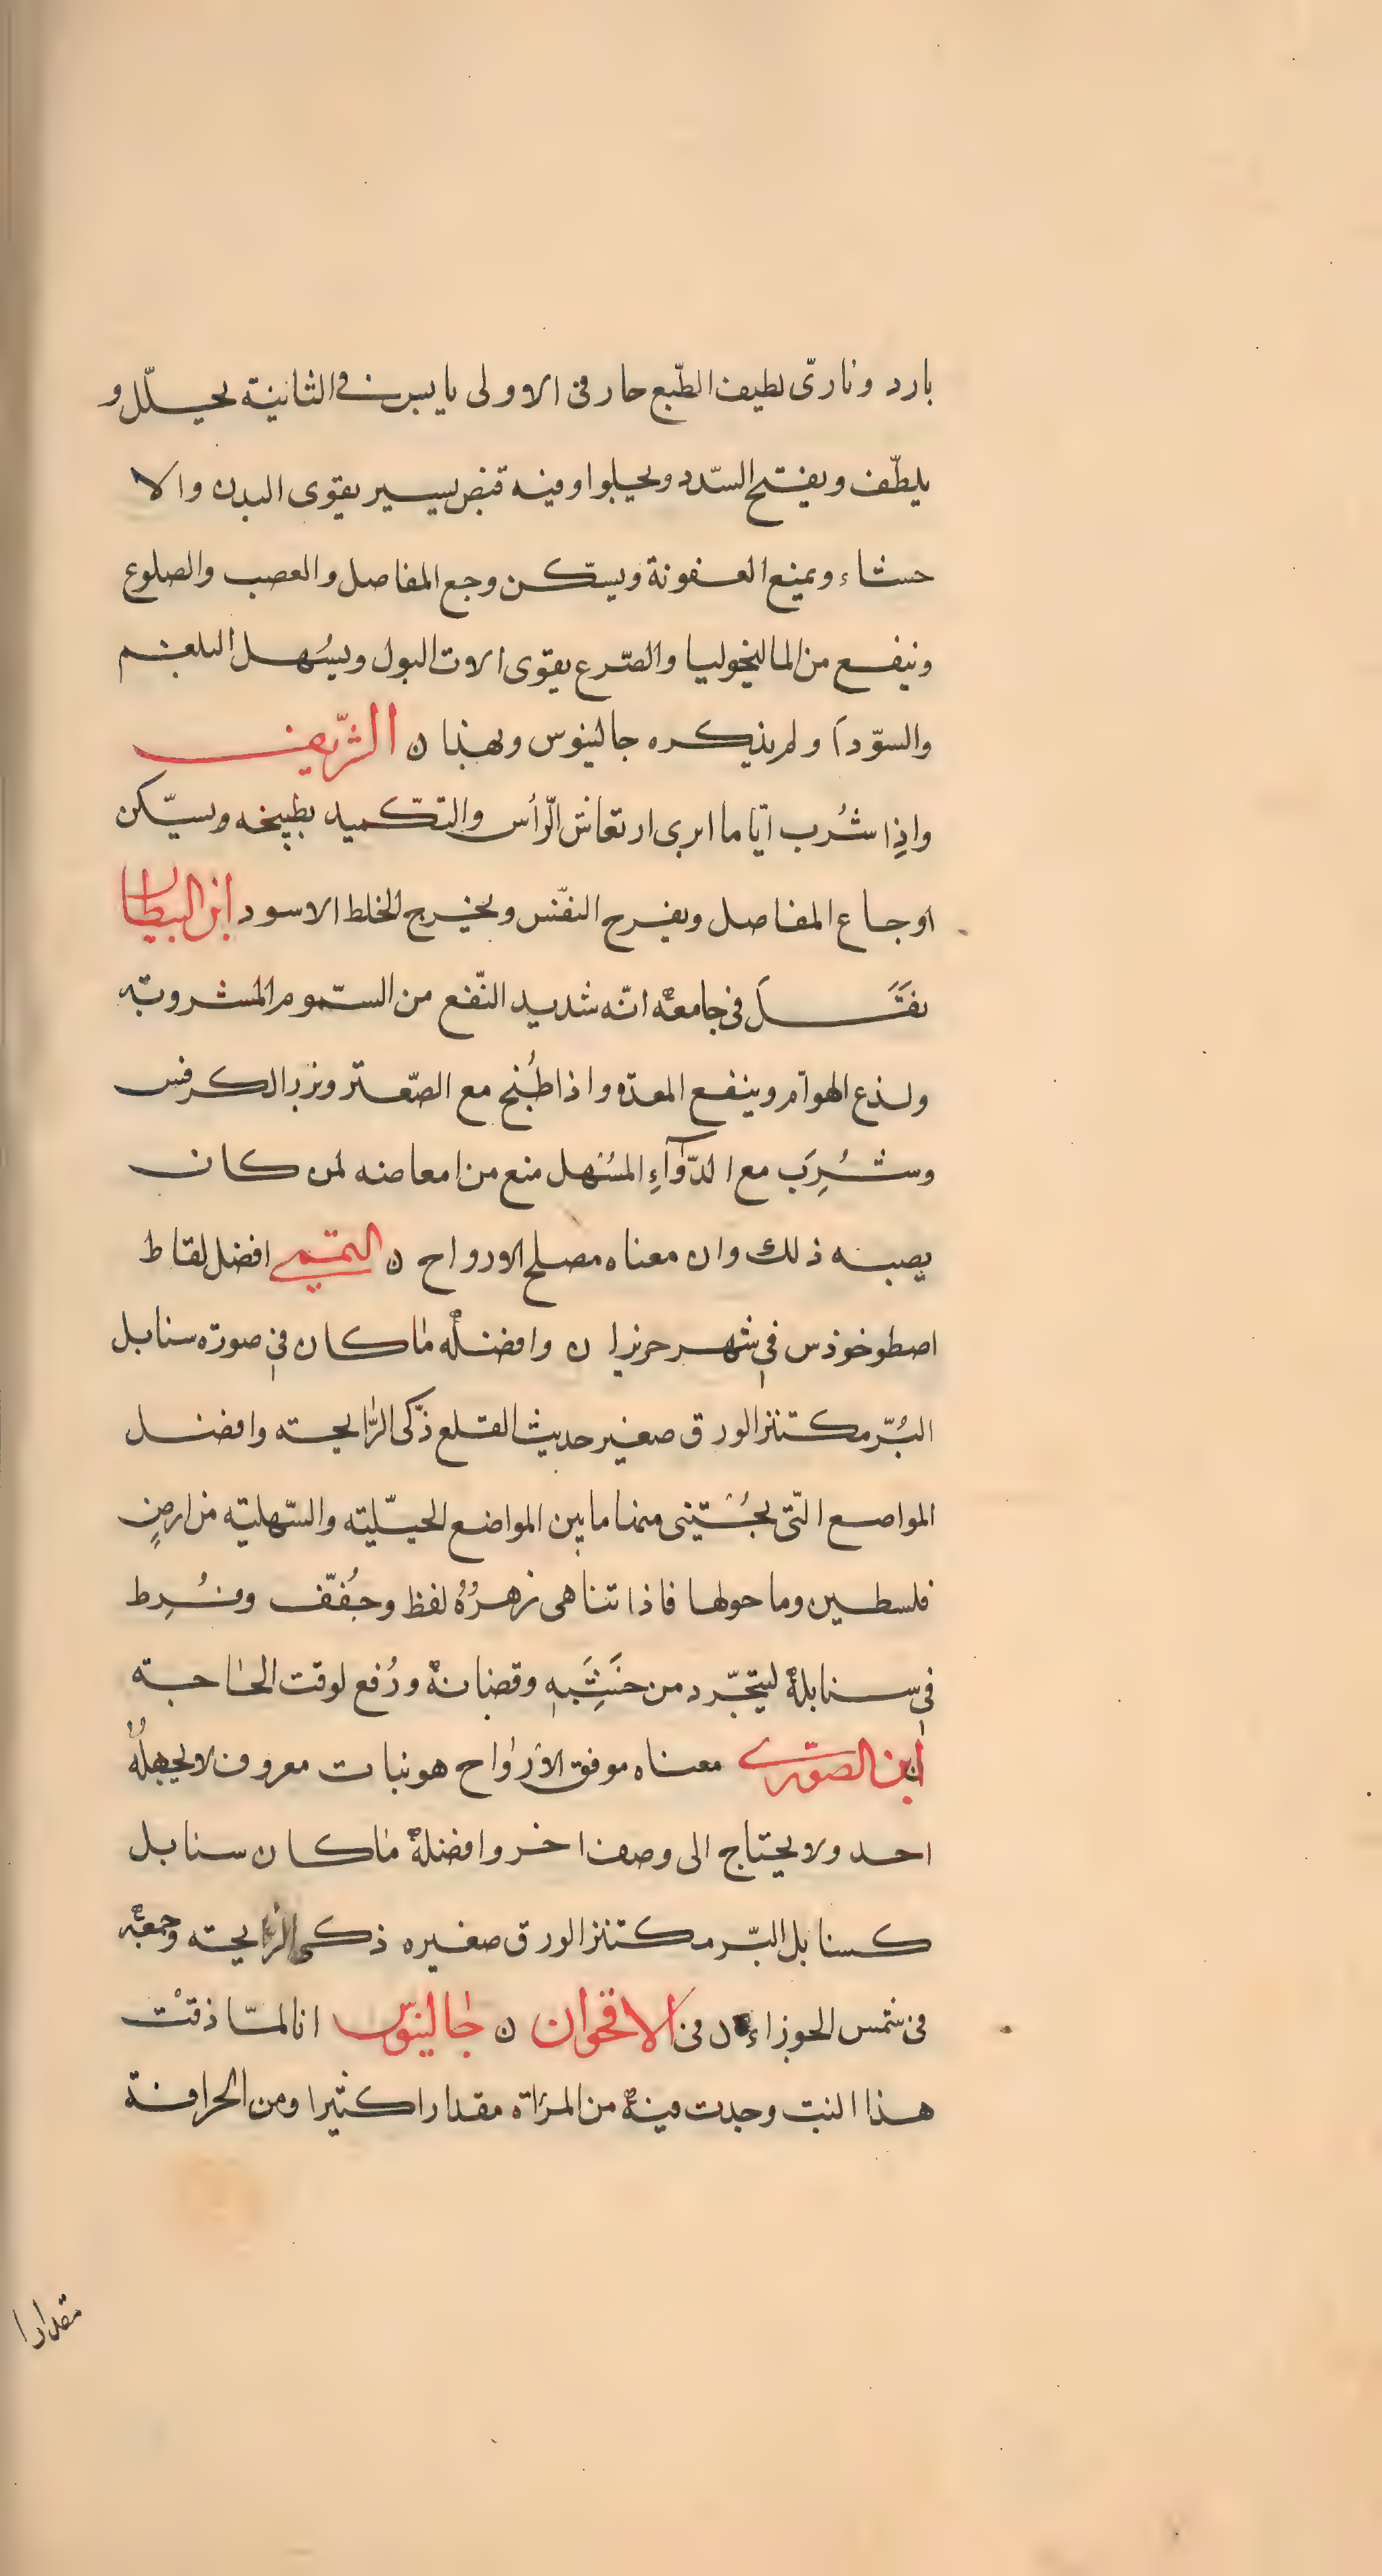 بارد وناريّ لطيف الطّبع حار فى الاولى يابس فے الثانية يحلّل و
يلطّف ويفتح السّدد ويحلبوا وفيه قبض يسير يقوى البدن والا
حشاء ويمنع العفونة ويسكّن وجع المفاصل والعصب والصلوع
وينفع من الماليخوليا والصّرع يقوى الات البول ويسُهل البلغم
والسّودآ ولم يذكره جالينوس وبهذا ن الشّريف
واذِا شُرب ايّاما ابرى ارتعاش الرّأس والتكّميد بطبيخه ويسّكن
اوجاع المفاصل ويفرح النفّس ويخرج الخلط الاسود ابن البيطار
نقَلَ فى جامعهٌ انّه شديد النّفع من السّموم المشروبة
ولذع الهوآم وينفع المعدة واذا طُبخ مع الصّعتر وبزر الكرفس
وشُرِبَ مع الدّوآءِ المسُهل منع من امعاصه لمن كان
يصبه ذلك وان معناه مصلح الارواح ن التميمي افضل لقاط
اصطوخوذس في شهر حزيران وافضلهٌ ماكان في صورة سنابل
البُرّ مكتنز الورق صغير حديث القلع ذكّى الرّايحته وافضل
المواصع الّتى يجُتنى منها مابين المواضع الجبليّته والسّهليته من ارضٍ
فلسطين وما حولها فاذا تناهى زهرُهُ لفظ وجُفّف وفُرِط
في سنابلهٌ ليتجّرد من خَشَبِهِ وقضبانهٌ ورُفع لوقت الحاجة
ابن الصّوري معناه موفق الارواح هو نبات معروف لا يجهلهُ
احد ولا يحتاج الى وصف اخر وافضلهٌ ماكان سنابل
كسنابل البّر مكتنز الورق صغيره ذكى الرّايحته وجمعهٌ
فى شمس الجوزاء ن فى الاقحوان ن جالينوس انا لمّا ذقت
هذا النبت وجدت فيهٌ من المرّاة مقدارا كثيرا ومن الحرافة
مقدارا